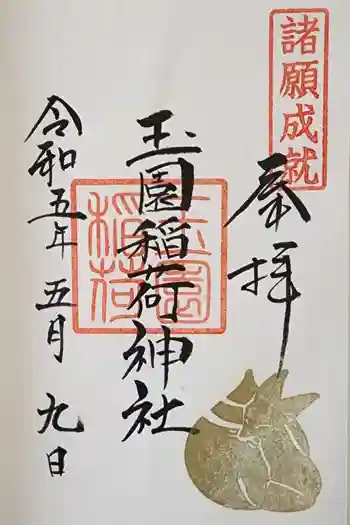 諸願成就
奉拝
玉園稲荷神社
玉園稲荷
令和五年 五月 九日